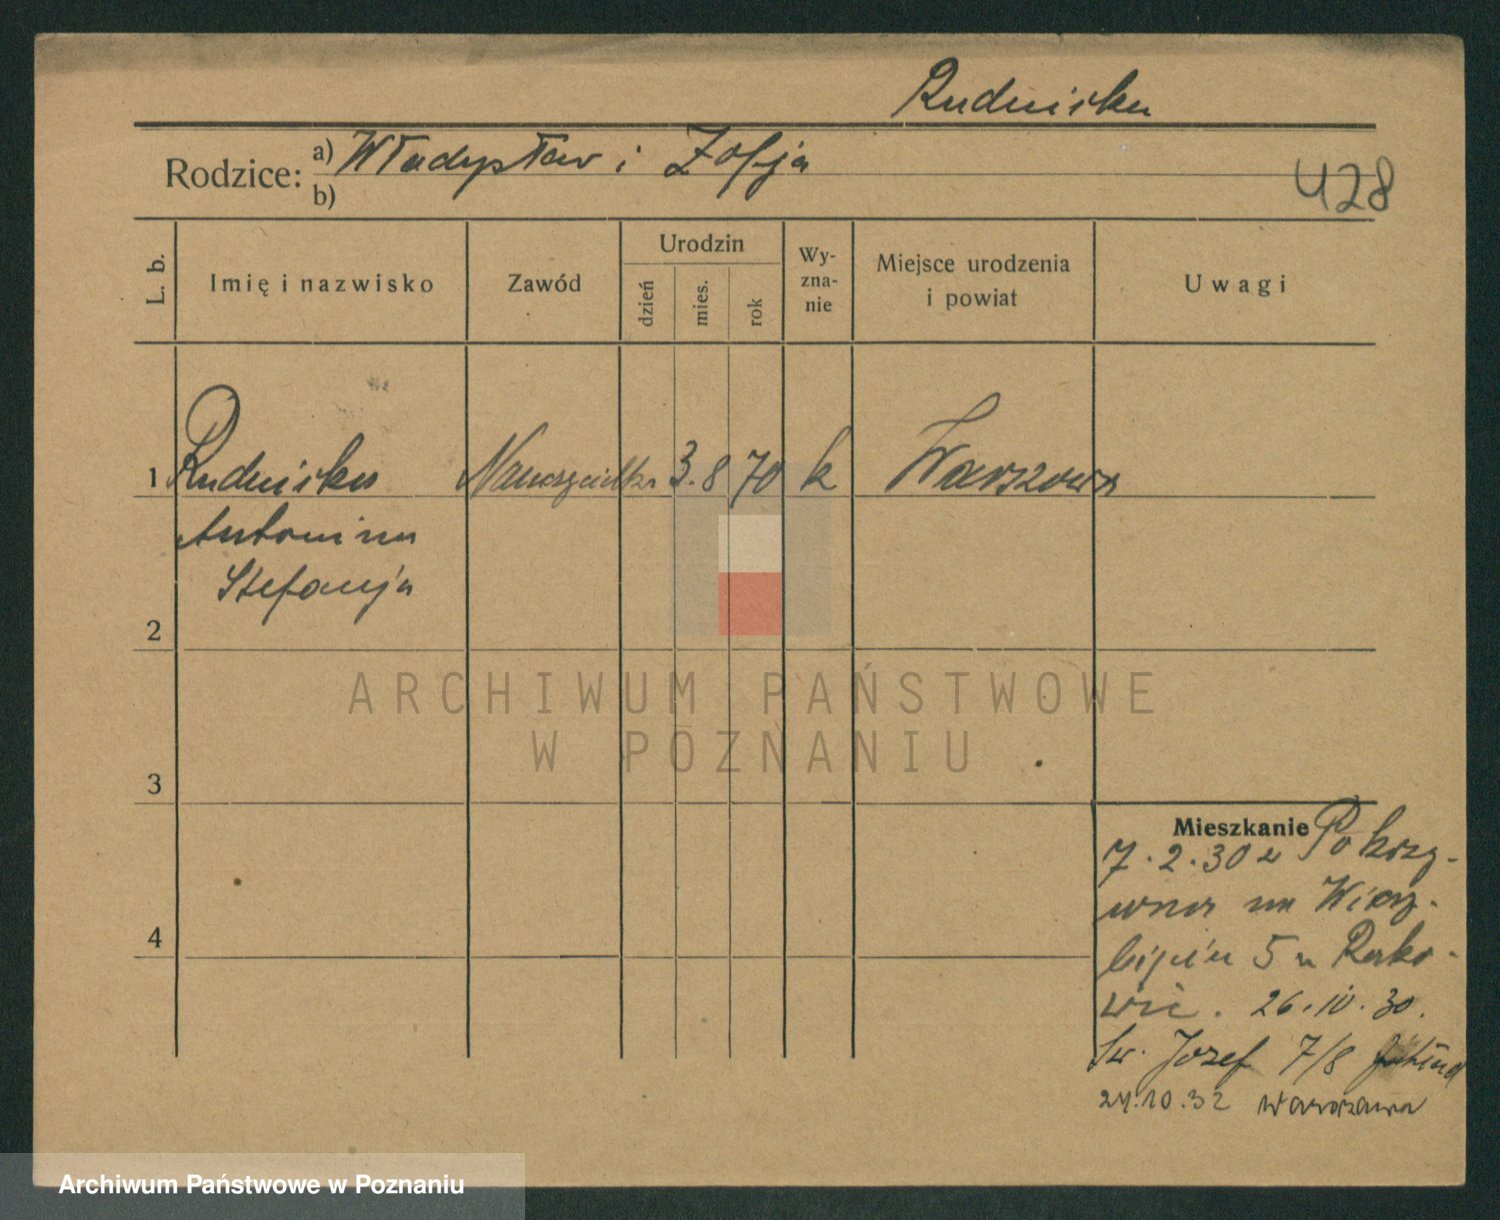 Rudnicka
Rodzice: a) Władysław i Zofja
b)
428
L. b.
Imię i nazwisko
Zawód
Urodzin
dzień
mies.
rok
Wy-
zna-
nie
Miejsce urodzenia
i powiat
Uwagi
1 Rudnicka Nauczycielka 3. 8 70 k Warszawa
Antonina
Stefanja
2
3
4
Mieszkanie
7.2.30 z Pokrzy-
wna na Wierz-
bięcin 5 u Rako-
wic. 26.10.30.
Św. Józef 7/8
24.10.32 Warszawa
ARCHIWUM PAŃSTWOWE
W POZNANIU
Archiwum Państwowe w Poznaniu